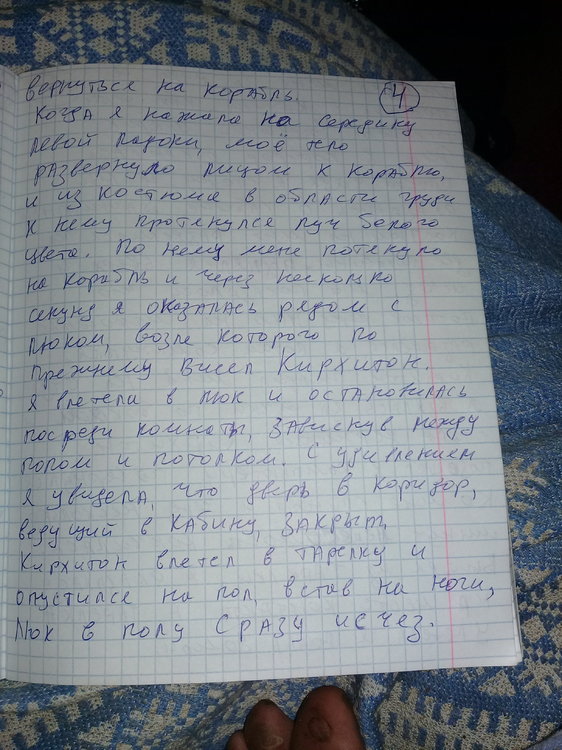 4
вернуться на корабль.
Когда я нажала на середину
левой ладони, моё тело
развернуло лицом к кораблю,
и из костюма в области груди
к нему протянулся луч белого
цвета. По нему меня потянуло
на корабль и через несколько
секунд я оказалась рядом с
люком, возле которого по
прежнему висел Кирхитон.
Я влетела в люк и остановилась
посреди комнаты, зависнув между
полом и потолком. С удивлением
я увидела, что дверь в коридор,
ведущий в кабину, закрыт.
Кирхитон влетел в тарелку и
опустился на пол, встав на ноги,
Люк в полу сразу исчез.